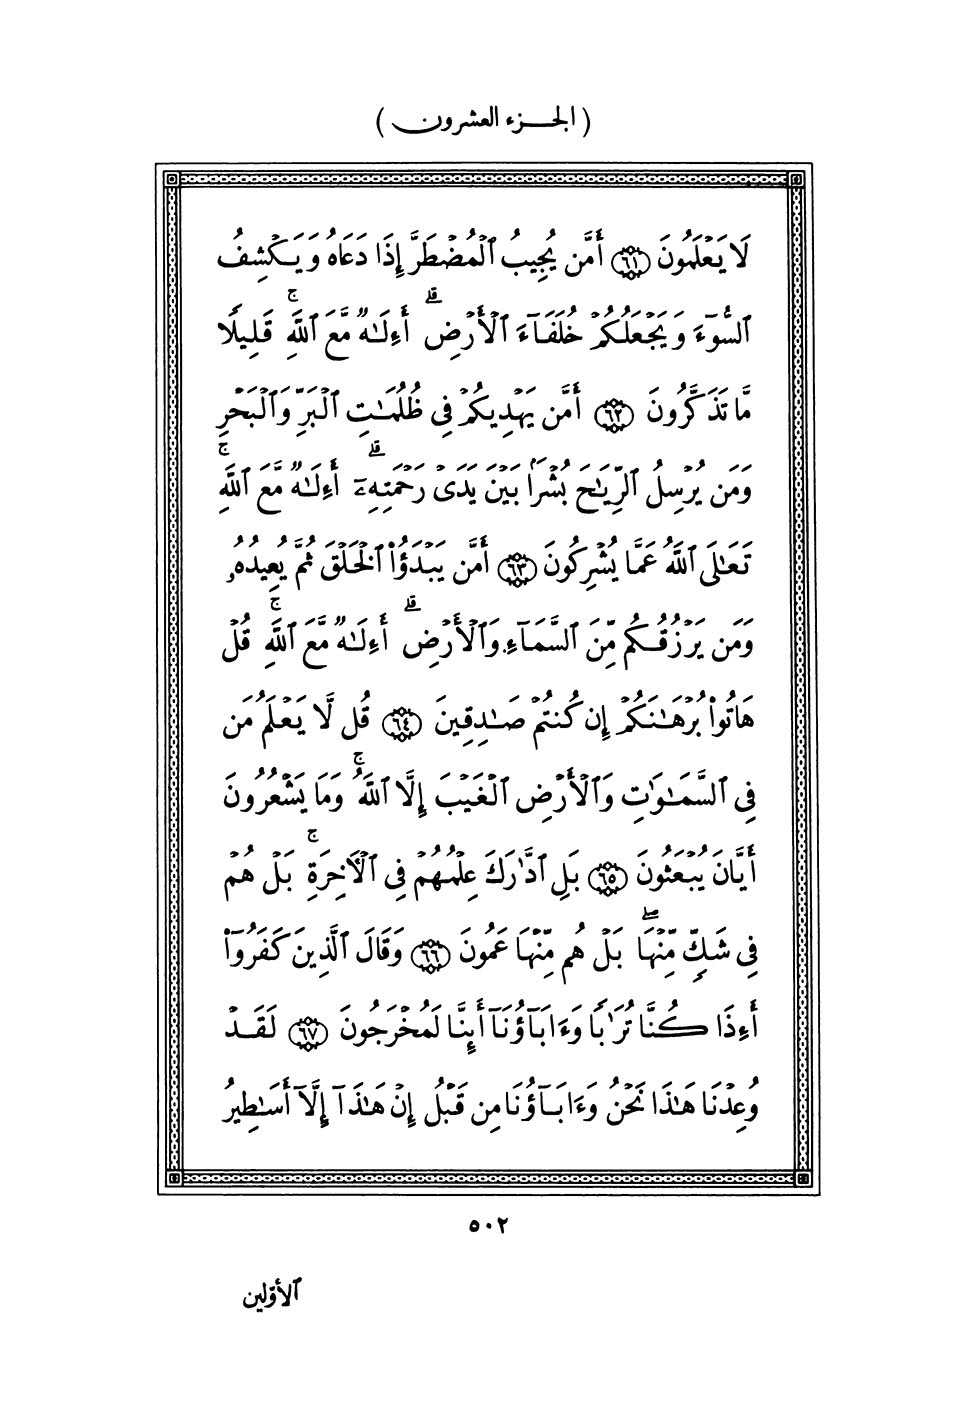 ( الجزء العشرون )
لَا يَعْلَمُونَ ٦١ أَمَّن يُجِيبُ ٱلْمُضْطَرَّ إِذَا دَعَاهُ وَيَكْشِفُ
ٱلسُّوٓءَ وَيَجْعَلُكُمْ خُلَفَآءَ ٱلْأَرْضِ ۗ أَءِلَٰهٌ مَّعَ ٱللَّهِ ۚ قَلِيلًا
مَّا تَذَكَّرُونَ ٦٢ أَمَّن يَهْدِيكُمْ فِى ظُلُمَٰتِ ٱلْبَرِّ وَٱلْبَحْرِ
وَمَن يُرْسِلُ ٱلرِّيَٰحَ بُشْرًۢا بَيْنَ يَدَىْ رَحْمَتِهِۦٓ ۗ أَءِلَٰهٌ مَّعَ ٱللَّهِ ۚ
تَعَٰلَى ٱللَّهُ عَمَّا يُشْرِكُونَ ٦٣ أَمَّن يَبْدَؤُا۟ ٱلْخَلْقَ ثُمَّ يُعِيدُهُۥ
وَمَن يَرْزُقُكُم مِّنَ ٱلسَّمَآءِ وَٱلْأَرْضِ ۗ أَءِلَٰهٌ مَّعَ ٱللَّهِ ۚ قُلْ
هَاتُوا۟ بُرْهَٰنَكُمْ إِن كُنتُمْ صَٰدِقِينَ ٦٤ قُل لَّا يَعْلَمُ مَن
فِى ٱلسَّمَٰوَٰتِ وَٱلْأَرْضِ ٱلْغَيْبَ إِلَّا ٱللَّهُ ۚ وَمَا يَشْعُرُونَ
أَيَّانَ يُبْعَثُونَ ٦٥ بَلِ ٱدَّٰرَكَ عِلْمُهُمْ فِى ٱلْأَخِرَةِ ۚ بَلْ هُمْ
فِى شَكٍّ مِّنْهَا ۖ بَلْ هُم مِّنْهَا عَمُونَ ٦٦ وَقَالَ ٱلَّذِينَ كَفَرُوٓا۟
أَءِذَا كُنَّا تُرَٰبًا وَءَابَآؤُنَآ أَئِنَّا لَمُخْرَجُونَ ٦٧ لَقَدْ
وُعِدْنَا هَٰذَا نَحْنُ وَءَابَآؤُنَا مِن قَبْلُ إِنْ هَٰذَآ إِلَّآ أَسَٰطِيرُ
٥٠٢
ٱلأوّلين